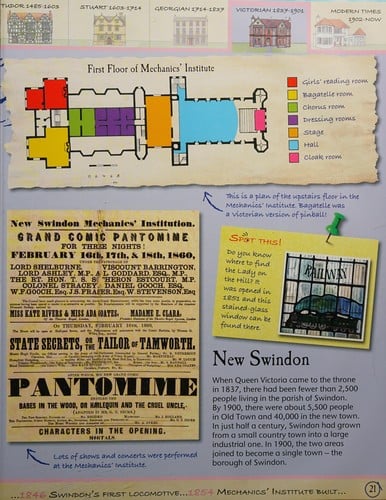 TUDOR 1485-1603
STUART 1603-1714
GEORGIAN 1714-1837
VICTORIAN 1837-1901
MODERN TIMES
1902-NOW
First Floor of Mechanics' Institute
Girls' reading room
Bagatelle room
Chorus room
Dressing rooms
Stage
Hall
Cloak room
This is a plan of the upstairs floor in the
Mechanics' Institute. Bagatelle was
a Victorian version of pinball!
New Swindon Mechanics' Institution.
GRAND COMIC PANTOMIME
FOR THREE NIGHTS!
FEBRUARY 16th, 17th, & 18th, 1860,
LORD SHELBURNE, VISCOUNT BARRINGTON,
LORD ASHLEY, M.P. A. L. GODDARD ESQ., M.P.
THE RT. HON. T. S. S. HERON ESTCOURT, M.P.
COLONEL STRACEY, DANIEL GOOCH, ESQ.
W. F. GOOCH, Esq., J. S. FRASER, Esq., W. STEVENSON, Esq.
MISS KATE RIVERS & MISS ADA OATES. MADAME E. CLARA.
On THURSDAY, FEBRUARY 16th, 1860,
STATE SECRETS, OR THE TAILOR OF TAMWORTH.
PANTOMIME
BABES IN THE WOOD, OR HARLEQUIN AND THE CRUEL UNCLE,
CHARACTERS IN THE OPENING.
MORTALS
SPOT THIS!
Do you know
where to find
the Lady on
the Hill? It
was opened in
1852 and this
stained-glass
window can be
found there.
RAILWAY
New Swindon
When Queen Victoria came to the throne
in 1837, there had been fewer than 2,500
people living in the parish of Swindon.
By 1900, there were about 5,500 people
in Old Town and 40,000 in the new town.
In just half a century, Swindon had grown
from a small country town into a large
industrial one. In 1900, the two areas
joined to become a single town – the
borough of Swindon.
Lots of shows and concerts were performed
at the Mechanics' Institute.
...1846 SWINDON'S FIRST LOCOMOTIVE...1854 MECHANICS' INSTITUTE BUILT...
21